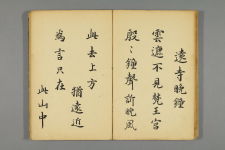 遠寺晩鐘
雲遮不見梵王宮
殷〻鐘聲訴晩風
此去上方猶遠近
為言只在
此山中